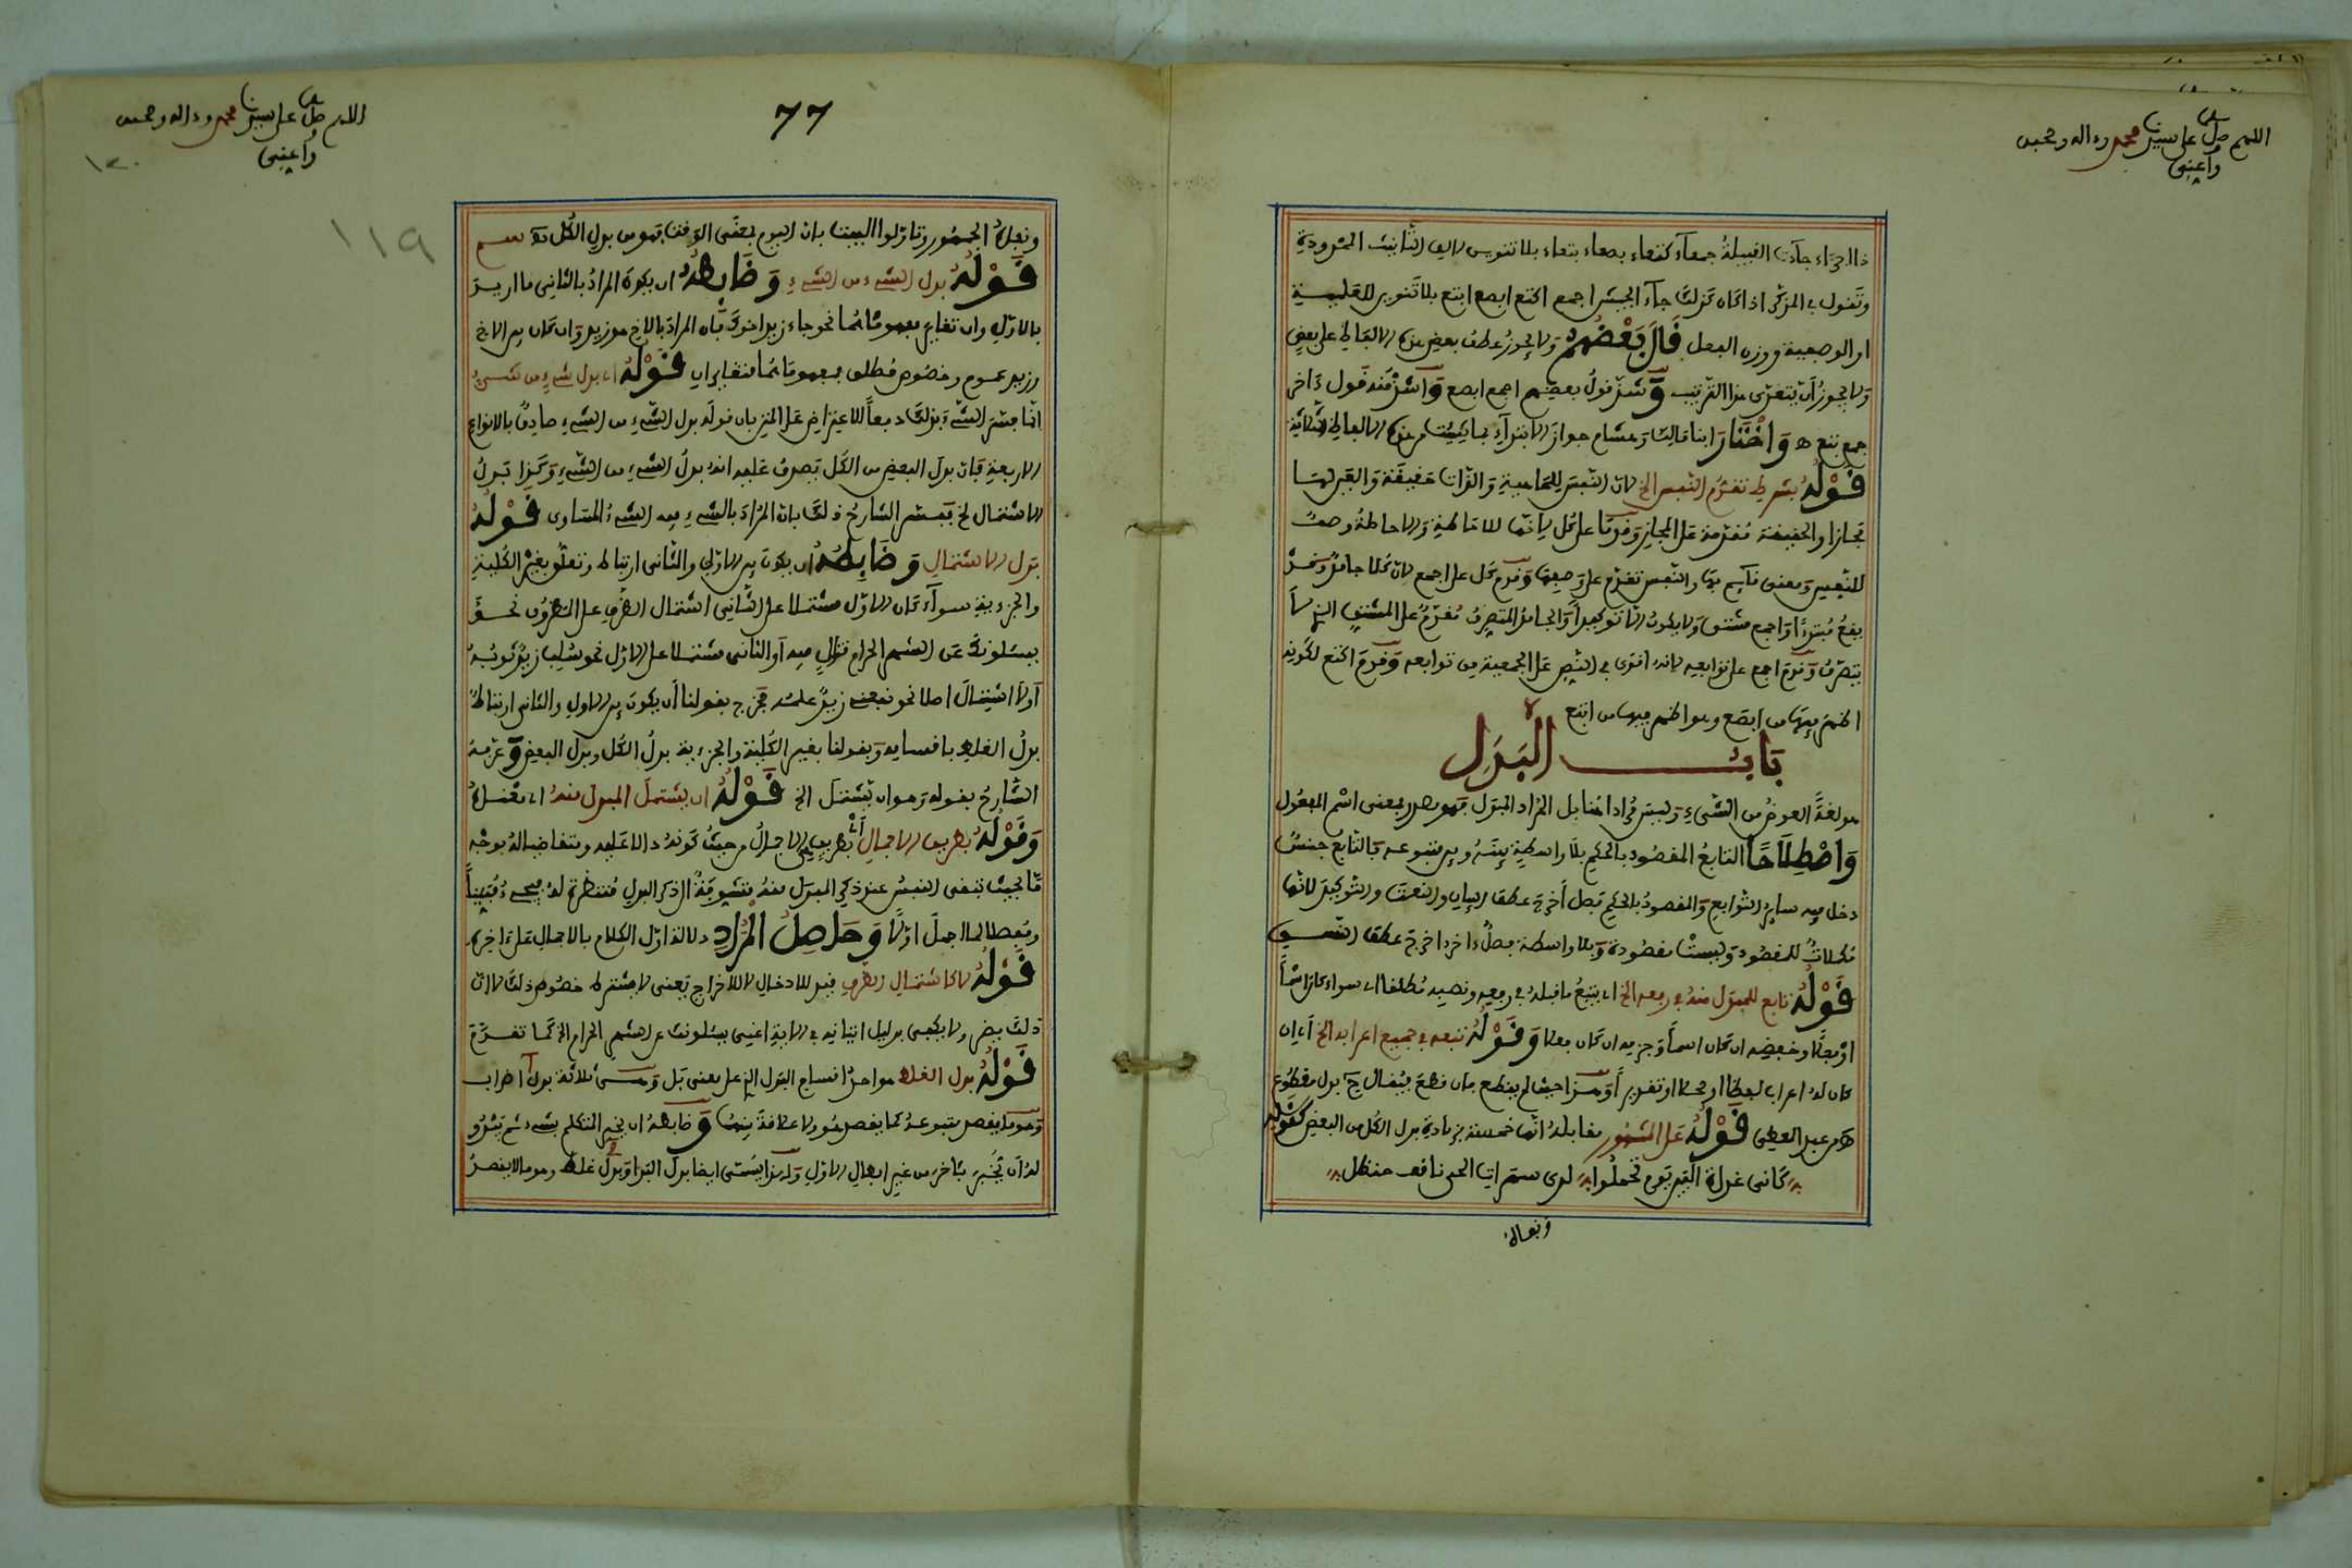 اللهم صل على سيدنا محمد وءاله وصحبه
واعني
ذا الجزاء جاءت القبيلة جمعاء كتعاء بصعاء بتعاء بلا تنوين لالف التأنيث الممدودة
وتقول في المذكر اذا كان كذلك جاء الجيش اجمع اكتع ابصع ابتع بلا تنوين للعلمية
او الوصفية ووزن الفعل قال بعضهم ولا يجوز عطف بعض هذه الالفاظ على بعض
ولا يجوز ان يتعدى هذا الترتيب وشذ قول بعضهم اجمع ابصع واشذ منه قول ءاخر
جمع بتع ه واختار ابنا مالك وهشام جواز الابتداء بما شئت من هذه الالفاظ الثلاثة
قوله بشرط تقدم النفس الخ لان النفس للماهية والذات حقيقة والعين لها
مجازا والحقيقة مقدمة على المجاز وقدما على كل لانها للاحاطة والاحاطة وصف
للنفس ومعنى قائم بها والنفس تقدم على وصفها وقدم كل على اجمع لان كلا جامد وقد
يقع مبتدءا واجمع مشتق ولا يكون الا توكيدا والجامد المتصرف مقدم على المشتق الذي لا
يتصرف وقدم اجمع على توابعه لانه اقوى في النص على الجمعية من توابعه وقدم اكتع لكونه
اظهر فيها من ابصع وهو اظهر فيها من ابتع
باب البدل
هو لغة العوض من الشيء وليس مرادا هنا بل المراد المبدل فهو مصدر بمعنى اسم المفعول
واصطلاحا التابع المقصود بالحكم بلا واسطة بينه وبين متبوعه فالتابع جنس
دخل فيه سائر التوابع والمقصود بالحكم فصل أخرج عطف البيان والنعت والتوكيد لانها
مكملات للمقصود وليست مقصودة وبلا واسطة فصل ءاخر اخرج عطف النسق
قوله تابع للمبدل منه في رفعه الخ اي يتبع ما قبله في رفعه ونصبه مطلقا اي سواء كان اسما
او فعلا وخفضه ان كان اسما وجزمه ان كان فعلا وقوله تبعه في جميع اعرابه الخ اي ان
كان له اعراب لفظا او محلا او تقديرا وهذا حيث لم يقطع فان قطع فيقال ح بدل مقطوع
ه من عبد المعطي قوله على المشهور مقابله انها خمسة بزيادة بدل الكل من البعض كقوله
كأني غداة البين يوم تحملوا لدى سمرات الحي ناقف حنظل
ونفاه
77
اللهم صل على سيدنا محمد وءاله وصحبه
واعني
١٢٠
١١٩
ونفاه الجمهور وتاولوا البيت بان اليوم بمعنى الوقت فهو من بدل الكل
قوله بدل الشيء من الشيء وضابطه ان يكون المراد بالثاني ما اريد
بالاول وان تغاير مفهوماهما نحو جاء زيد اخوك فان المراد بالاخ هو زيد وان كان بين الاخ
وزيد عموم وخصوص مطلق فمفهوماهما متغايران قوله اي بدل شيء من شيء
انما فسر الشيء بذلك دفعا للاعتراض على المتن بان قوله بدل الشيء من الشيء صادق بالانواع
الاربعة فان بدل البعض من الكل يصدق عليه انه بدل الشيء من الشيء وكذا بدل
الاشتمال الخ ففسر الشارح ذلك بان المراد بالشيء فيه الشيء المساوي قوله
بدل الاشتمال وضابطه ان يكون بين الاول والثاني ارتباط وتعلق بغير الكلية
والجزءية سواء كان الاول مشتملا على الثاني اشتمال الظرف على المظروف نحو
يسئلونك عن الشهر الحرام قتال فيه أو الثاني مشتملا على الاول نحو سلب زيد ثوبه
أو لا اشتمال اصلا نحو نفعني زيد علمه فخرج بقولنا أن يكون بين الاول والثاني ارتباط
بدل الغلط باقسامه وبقولنا بغير الكلية والجزءية بدل الكل وبدل البعض وعرفه
الشارح بقوله وهو ان يشتمل الخ قوله ان يشتمل المبدل منه اي
وقوله بطريق الاجمال أي بطريق هي الاجمال من حيث كونه دالا عليه ومتقاضيا له بوجه
ما بحيث تبقى النفس عند ذكر المبدل منه متشوقة الى ذكر البدل منتظرة له فيجيء مبينا
ومفصلا لما اجمل اولا وحاصل المراد دلالة اول الكلام بالاجمال على ءاخره
قوله لا كاشتمال الظرف قيد للادخال لا للاخراج يعني لا يشترط خصوص ذلك لا ان
ذلك يضر ولا يكفي بدليل اتيانه في الاية اعني يسئلونك عن الشهر الحرام الخ كما تقدم
قوله بدل الغلط هو احد اقسام البدل الذي على معنى بل وهي ثلاثة بدل اضراب
وهو ما يقصد متبوعه كما يقصد هو ولا علاقة بينهما وضابطه ان يخبر المتكلم بشيء ثم يبدو
له أن يخبر بئاخر من غير ابطال الاول ولهذا يسمى ايضا بدل البدا وبدل غلط وهو ما لا يقصد